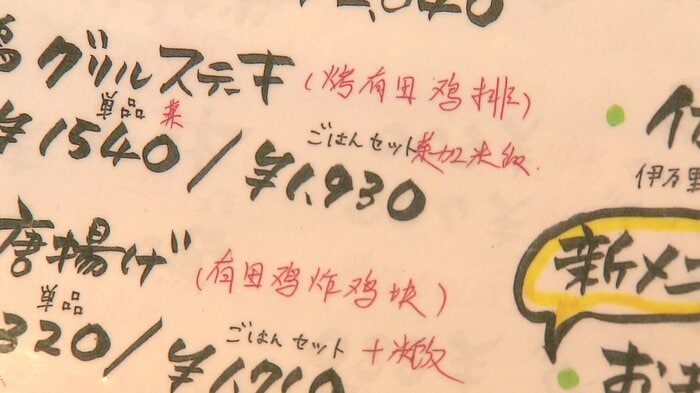 鶏グリルステーキ (烤有田鸡排)
単品 菜 ごはんセット 菜加米飯
¥1540 / ¥1,930
唐揚げ (有田鸡炸鸡块)
単品 ごはんセット +米飯
320 / ¥1,710
伊万里
新メニ